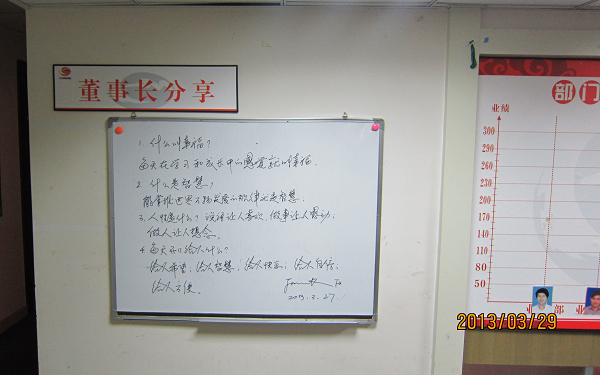 董事长分享
1. 什么叫幸福?
每天在学习和成长中的感觉就叫幸福.
2. 什么是智慧?
能掌握世界万物发展的规律就是智慧.
3. 人性是什么? 说话让人喜欢, 做事让人感动,
做人让人想念.
4. 每天我们给人什么?
给人希望; 给人智慧; 给人快乐; 给人自信;
给人方便.
2013.3.27.
部门
业绩
300
290
250
210
170
160
130
110
80
50
部 业
2013/03/29